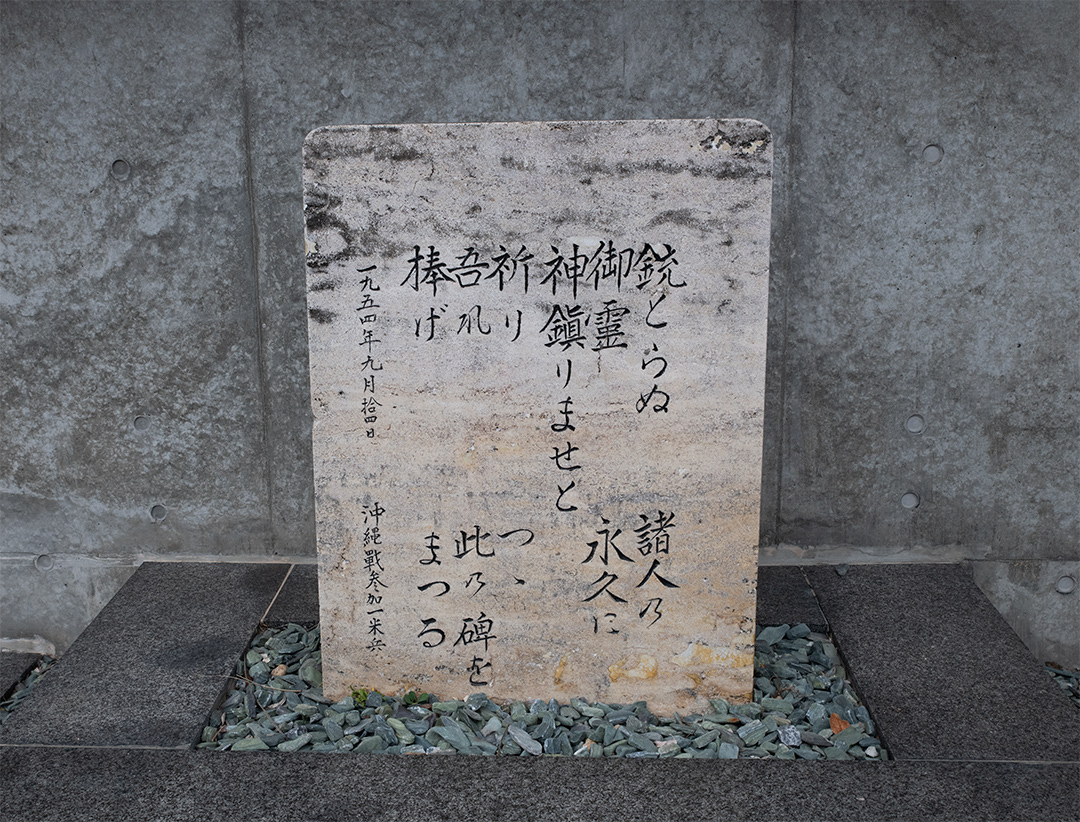 銃とらぬ　諸人乃
御霊　永久に
神鎭りませと
祈り　つゝ
吾れ　此乃碑を
棒げ　まつる
一九五四年九月拾四日　沖縄戰参加一米兵